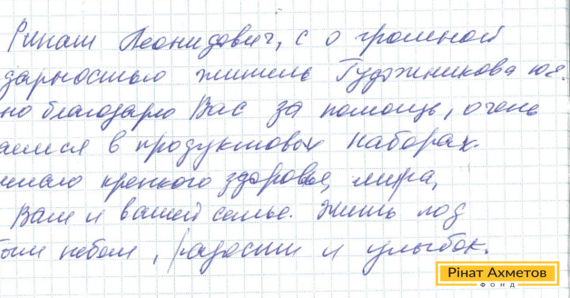 Ринат Леонидович, с огромной
дарностью житель Гудожникова Ю.Я.
но благодарю Вас за помощь, очень
аемся в продуктовых наборах.
крепкого здоровья, мира,
Вам и вашей семье. Жить под
ым небом, радости и улыбок.
Рінат Ахметов
ФОНД